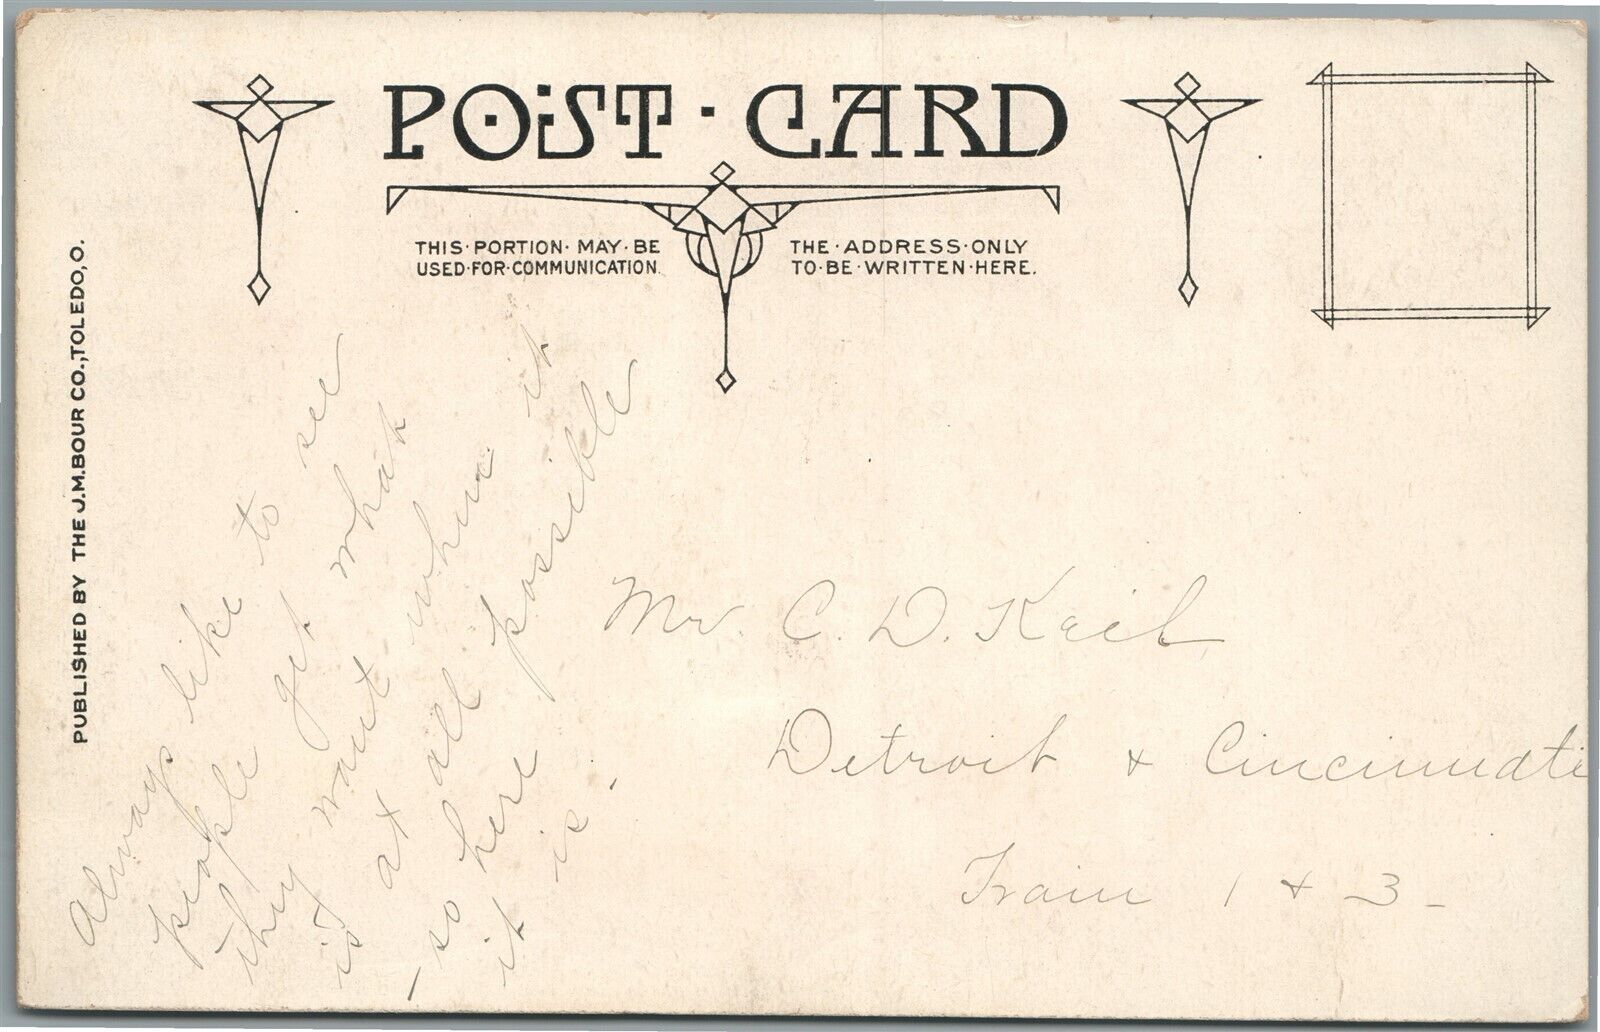 POST · CARD
THIS · PORTION · MAY · BE
USED · FOR · COMMUNICATION.
THE · ADDRESS · ONLY
TO · BE · WRITTEN · HERE.
PUBLISHED BY THE J.M.BOUR CO.,TOLEDO,O.
Always like to see
people get what
they want when it
is at all possible
– so here
it is.
Mr. C. D. Keil
Detroit + Cincinnati
Train 1 + 3 –